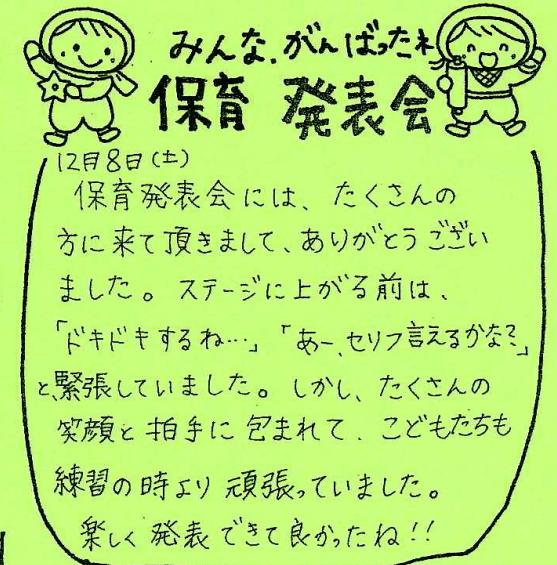 みんな、がんばったネ
保育 発表会
12月8日(土)
保育発表会には、たくさんの
方に来て頂きまして、ありがとうござい
ました。ステージに上がる前は、
「ドキドキするね…」「あー、セリフ言えるかな?」
と、緊張していました。しかし、たくさんの
笑顔と拍手に包まれて、こどもたちも
練習の時より頑張っていました。
楽しく発表できて良かったね!!